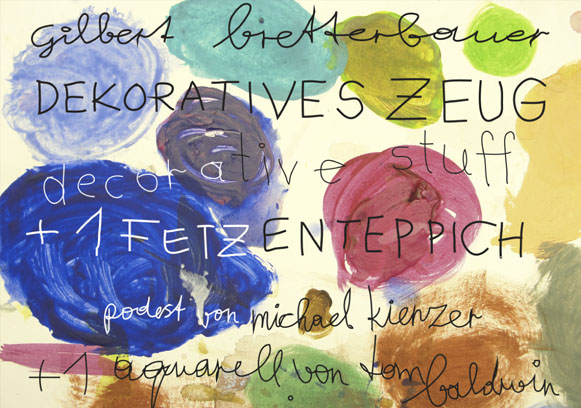 gilbert bretterbauer
DEKORATIVES ZEUG
decorative stuff
+ 1 FETZENTEPPICH
podest von michael kienzer
+ 1 aquarell von tom baldwin